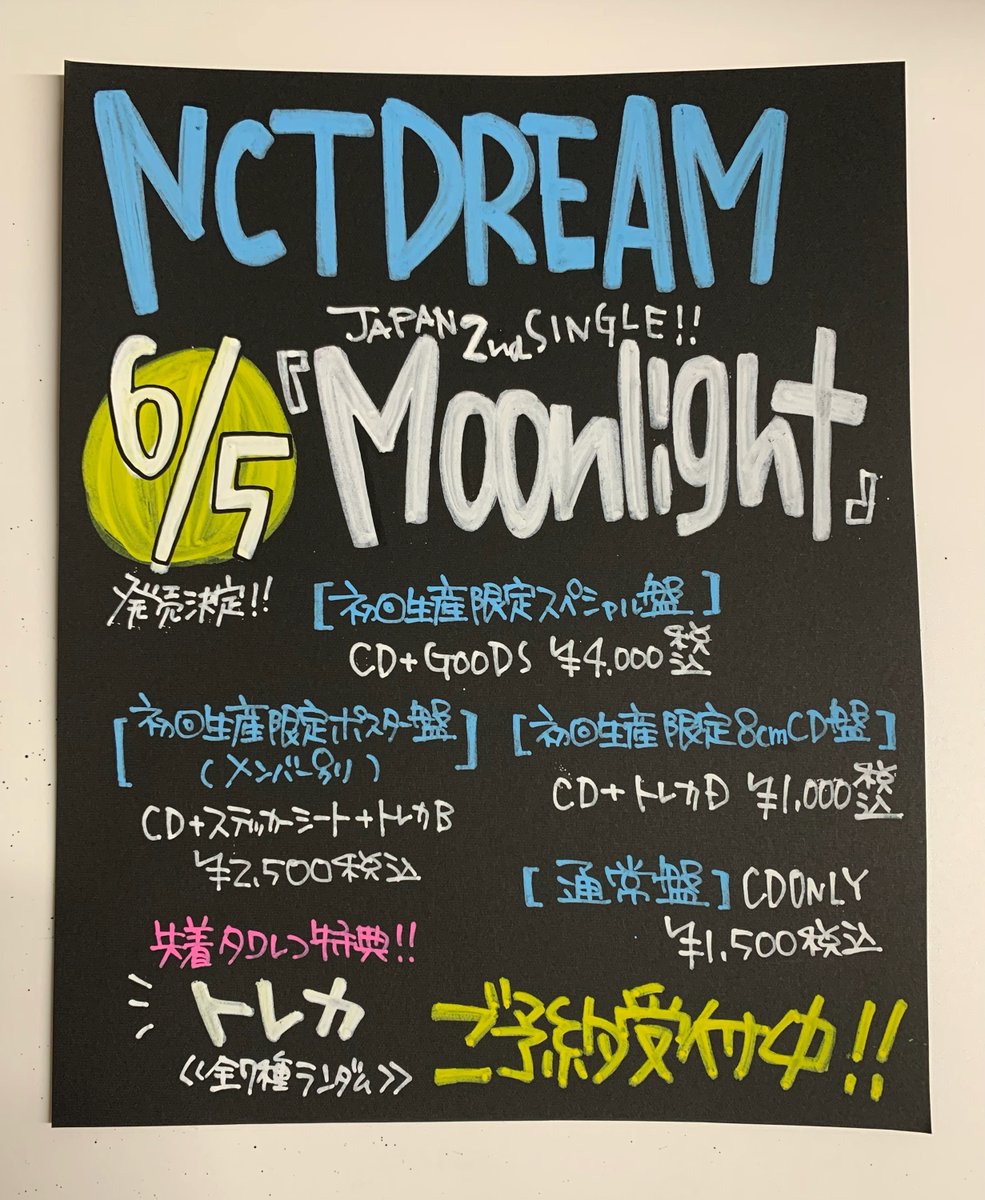 NCT DREAM
JAPAN 2nd SINGLE!!
6/5
『Moonlight』
発売決定!!
[初回生産限定スペシャル盤]
CD+GOODS ¥4,000税込
[初回生産限定ポスター盤
(メンバー別)]
CD+ステッカーシート+トレカB
¥2,500税込
[初回生産限定8cmCD盤]
CD+トレカD ¥1,000税込
[通常盤] CD ONLY
¥1,500税込
先着タワレコ特典!!
トレカ
《全7種ランダム》
ご予約受付中!!